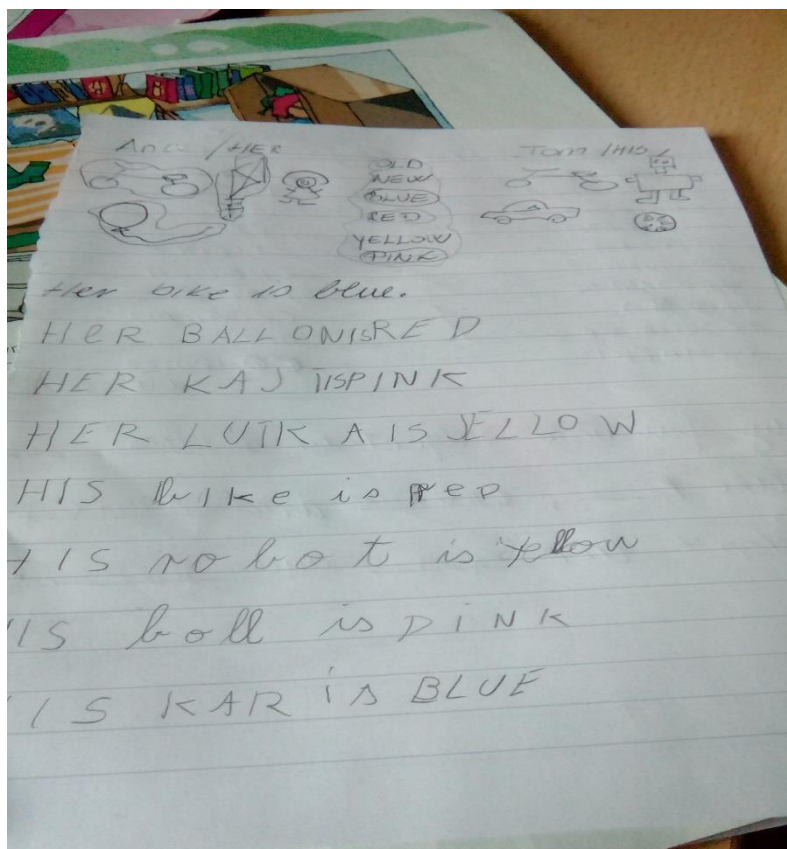 Ana / HER
OLD
NEW
BLUE
RED
YELLOW
PINK
Tom / HIS
Her bike is blue.
HeR BALLONISRED
HER KAJTISPINK
HER LUTKA IS JELLOW
HIS bIKe is reD
HIS robot is yellow
HIS boll is PiNK
HIS KAR is BLUE